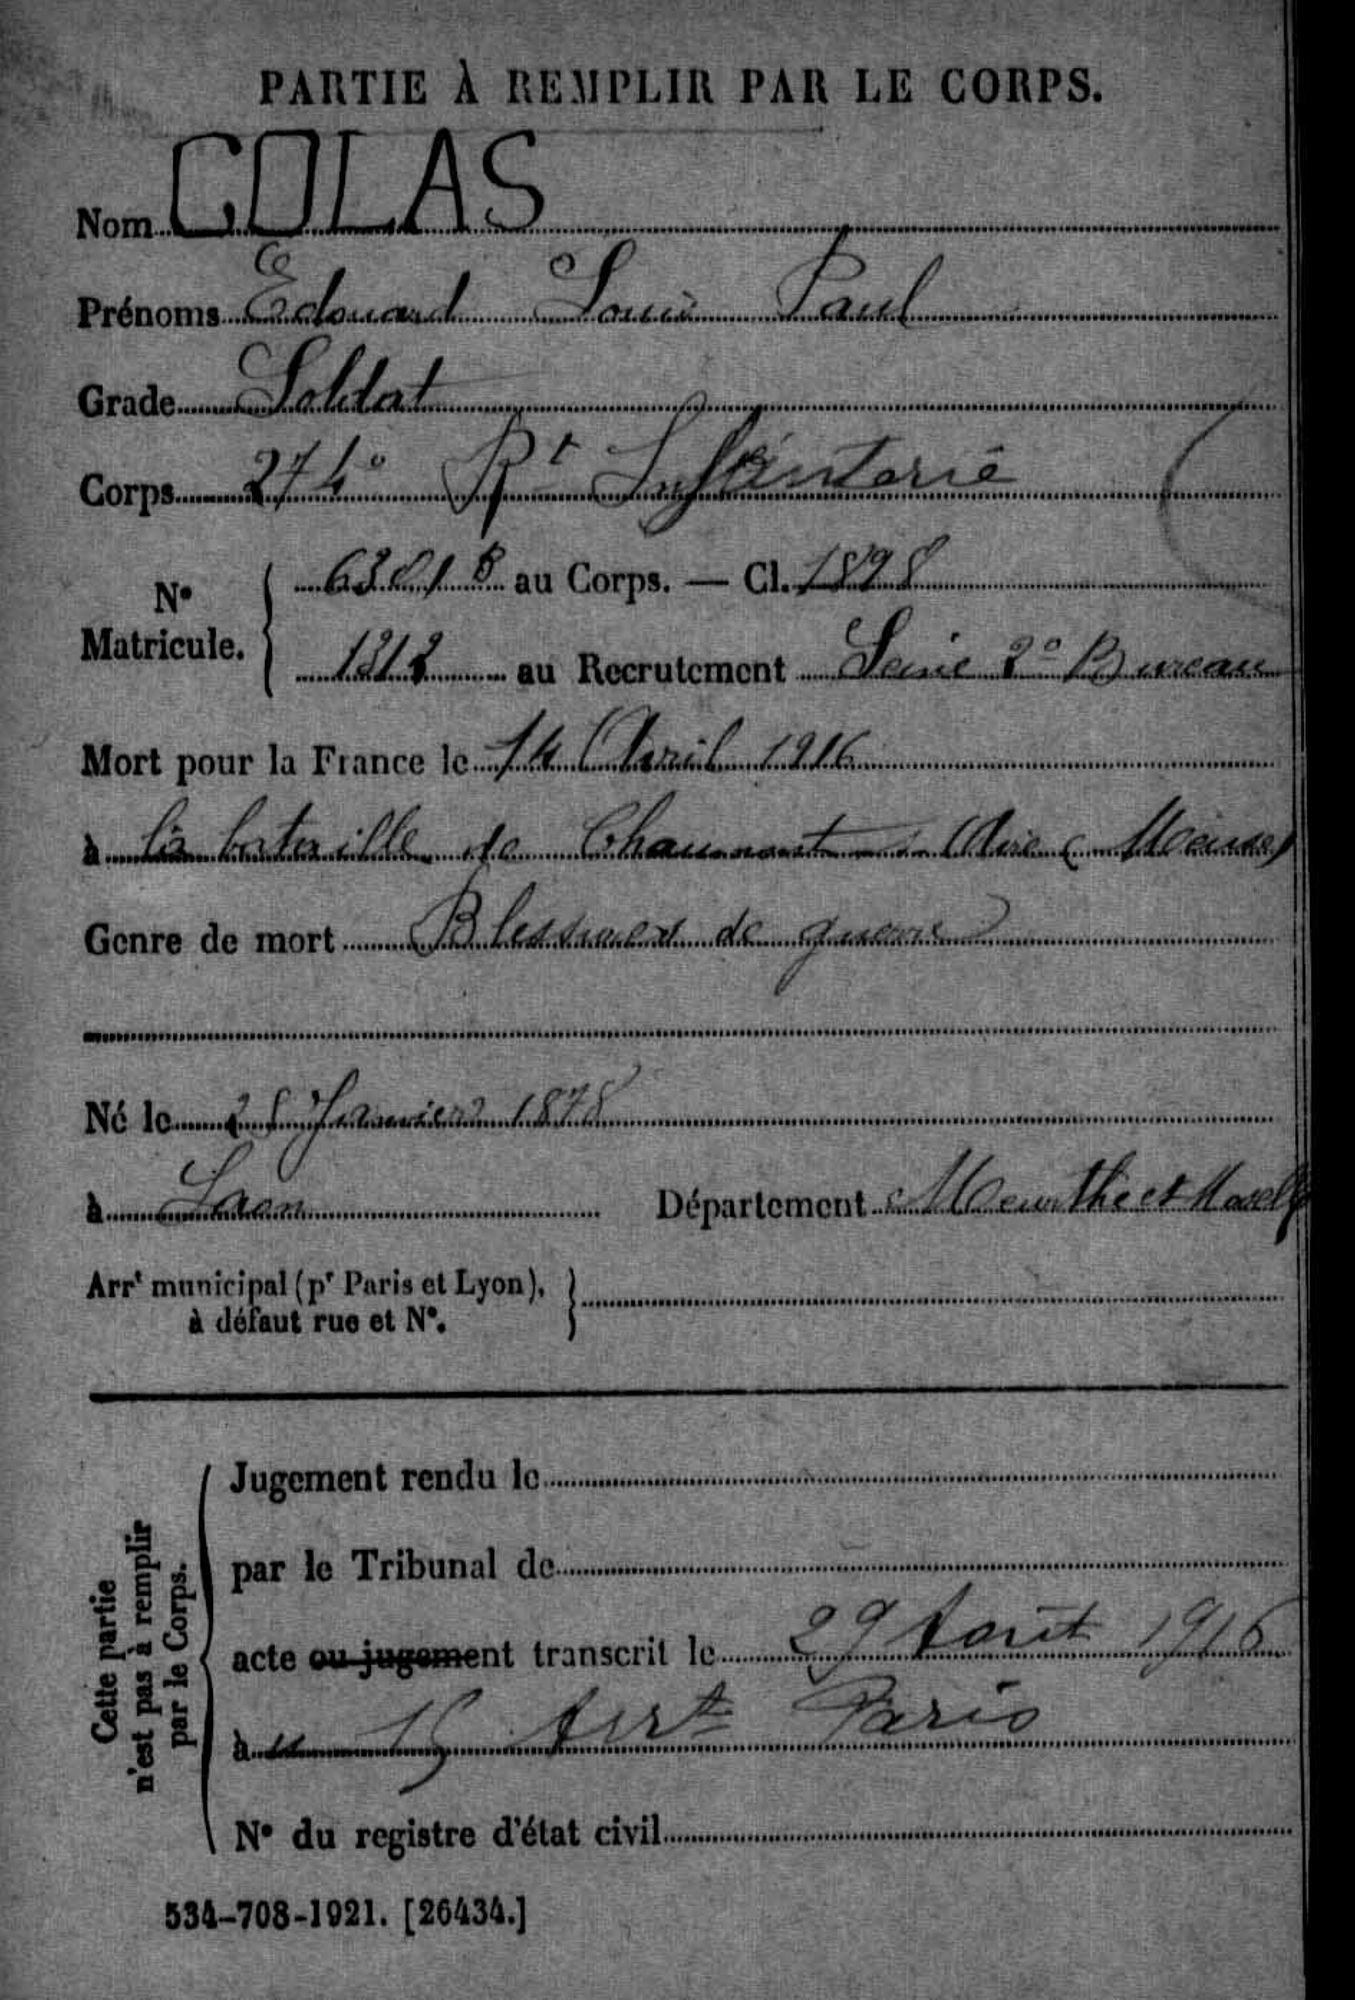 PARTIE À REMPLIR PAR LE CORPS.
Nom COLAS
Prénoms Edouard Louis Paul
Grade Soldat
Corps 274e Rt Infanterie
No Matricule. { 6381 B au Corps. — Cl. 1898
1212 au Recrutement Seine 2e Bureau
Mort pour la France le 14 Avril 1916
à la bataille de Chaumont s. Aire (Meuse)
Genre de mort Blessures de guerre
Né le 25 Janvier 1878
à Laon Département Meurthe et Moselle
Arrt municipal (pr Paris et Lyon), à défaut rue et No.
Cette partie n'est pas à remplir par le Corps.
Jugement rendu le
par le Tribunal de
acte ou jugement transcrit le 29 Août 1916
à 15 Arrt Paris
No du registre d'état civil
534-708-1921. [26434.]